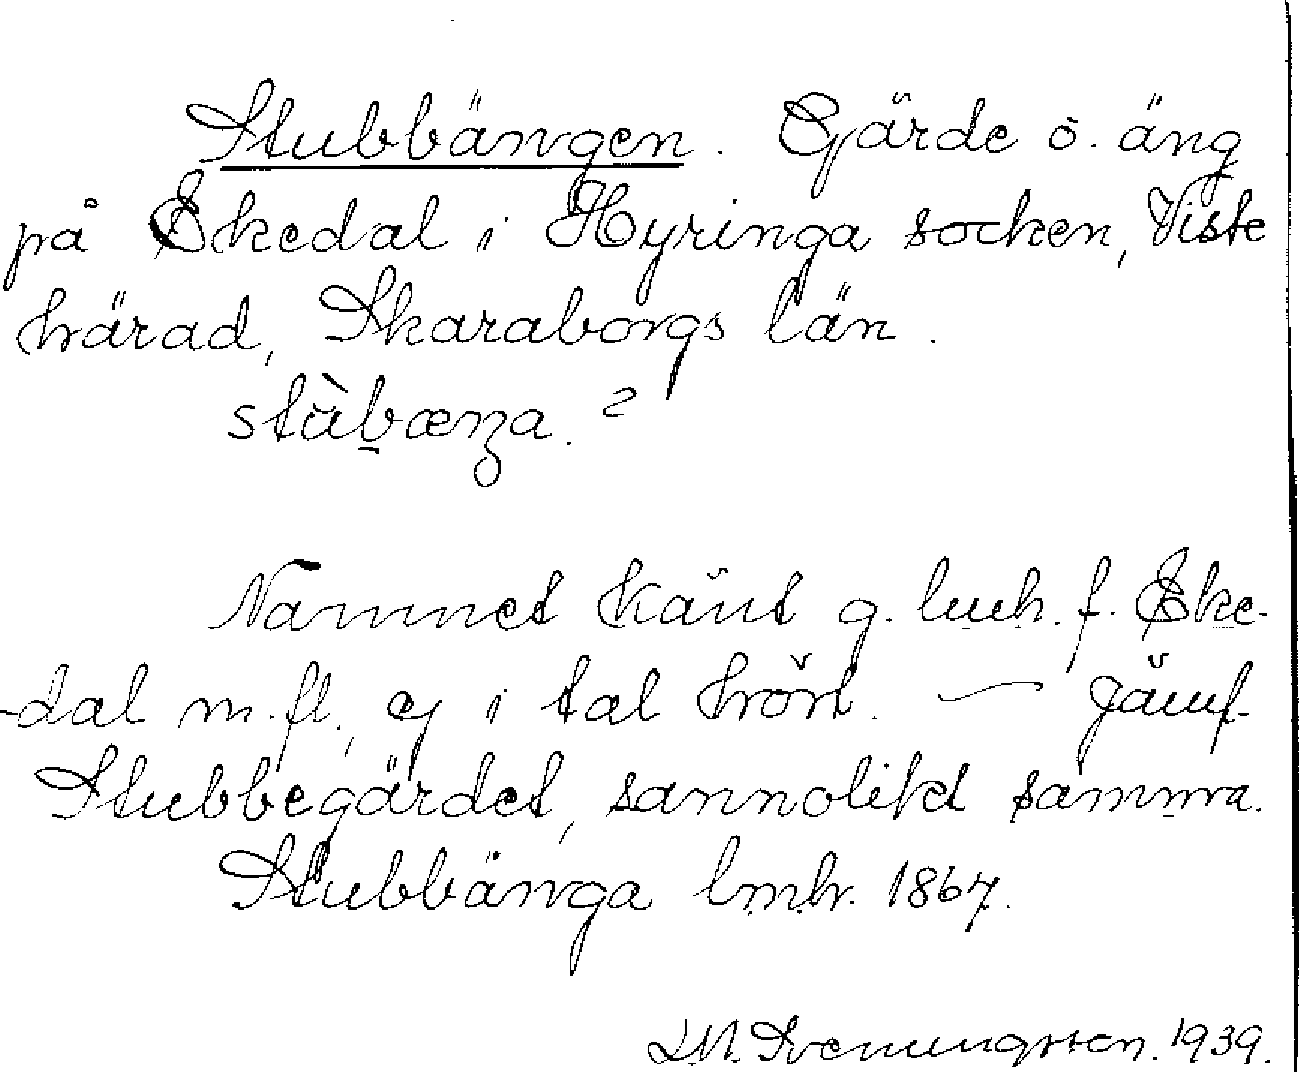 Stubbängen. Gärde o. äng
på Ekedal i Hyringa socken, Viste
härad, Skaraborgs län.
stùbænza. 2
Namnet känt g. lmh. f. Eke-
-dal m. fl., ej i tal hört. — Jämf.
Stubbegärdet, sannolikt samma.
Stubbänga lmhr. 1867.
D.M. Svenungsson. 1939.